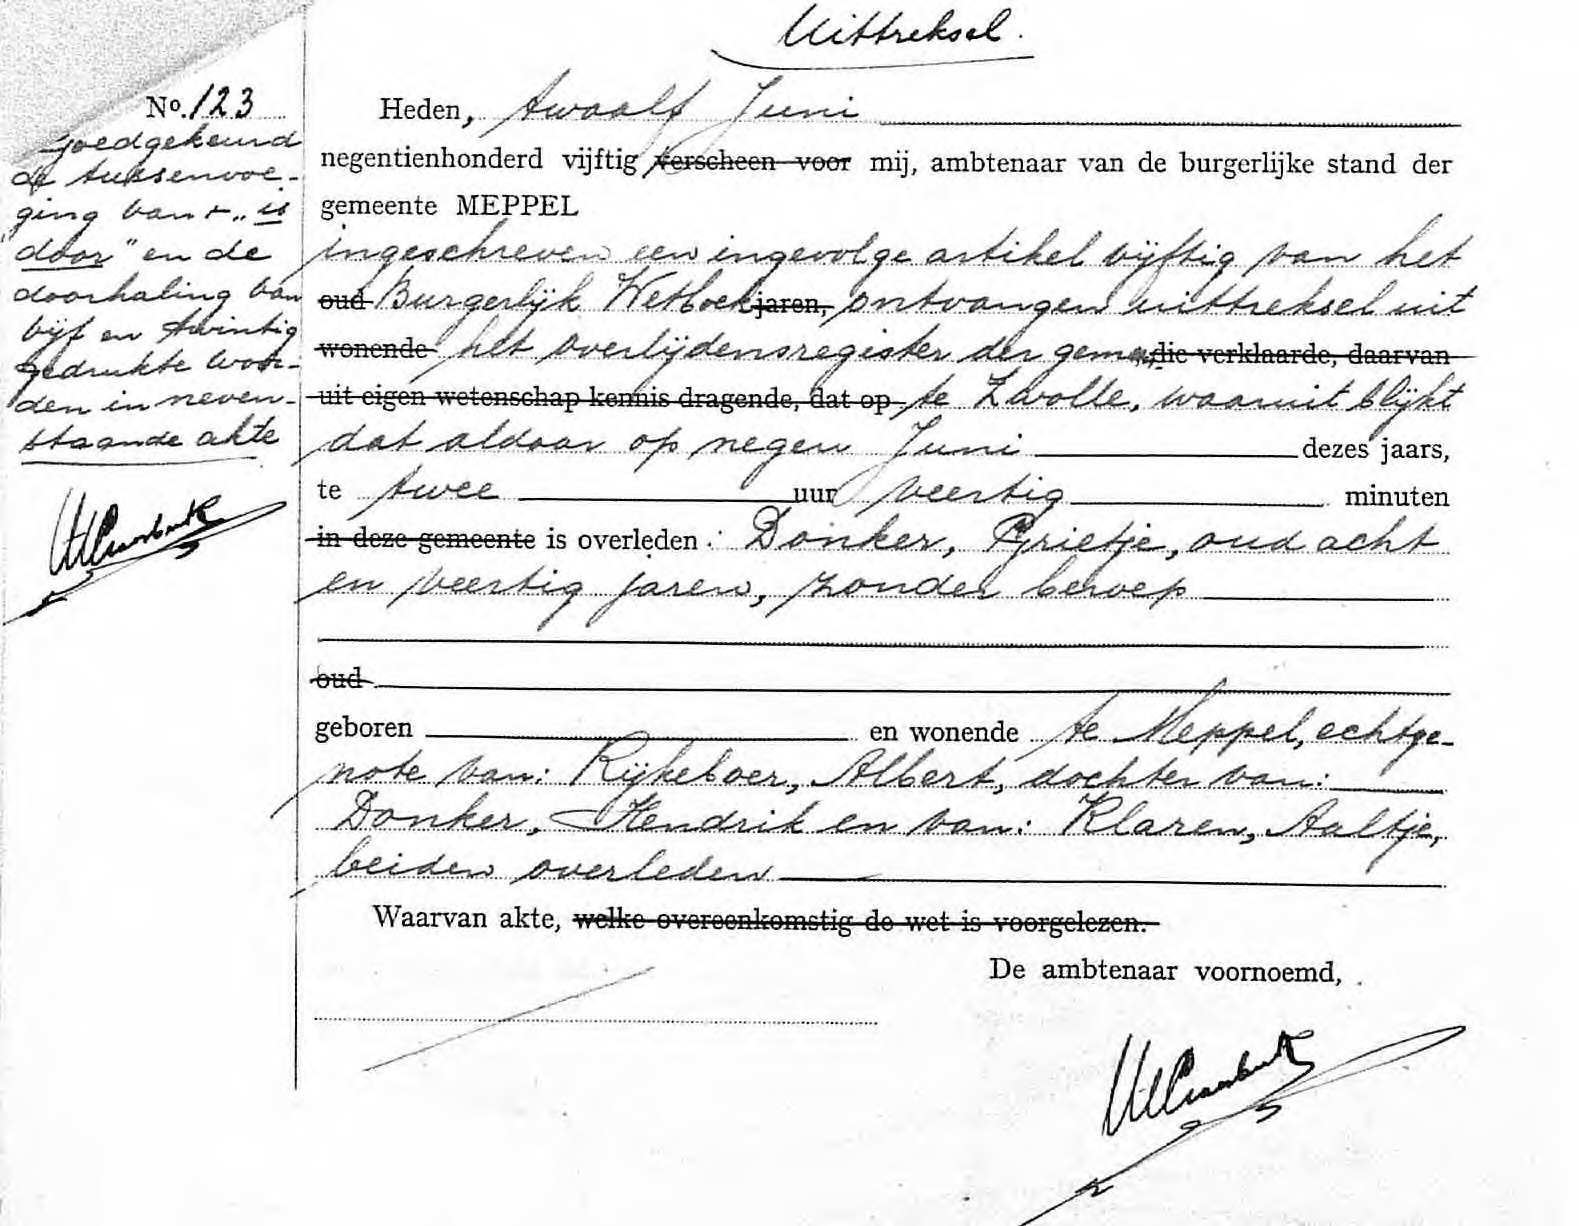 Uittreksel.
No. 123
Goedgekeurd
de tussenvoe-
ging van + „is
door” en de
doorhaling van
vijf en twintig
gedrukte woor-
den in neven-
staande akte
Heden, twaalf Juni
negentienhonderd vijftig verscheen voor mij, ambtenaar van de burgerlijke stand der
gemeente MEPPEL
ingeschreven een ingevolge artikel vijftig van het
oud Burgerlijk Wetboek jaren, ontvangen uittreksel uit
wonende het overlijdensregister der gem. die verklaarde, daarvan
uit eigen wetenschap kennis dragende, dat op te Zwolle, waaruit blijkt
dat aldaar op negen Juni dezes jaars,
te twee uur veertig minuten
in deze gemeente is overleden: Donker, Grietje, oud acht
en veertig jaren, zonder beroep
oud
geboren en wonende te Meppel, echtge-
note van: Rijkeboer, Albert, dochter van:
Donker, Hendrik en van: Klaren, Aaltje,
beiden overleden
Waarvan akte, welke overeenkomstig de wet is voorgelezen.
De ambtenaar voornoemd,